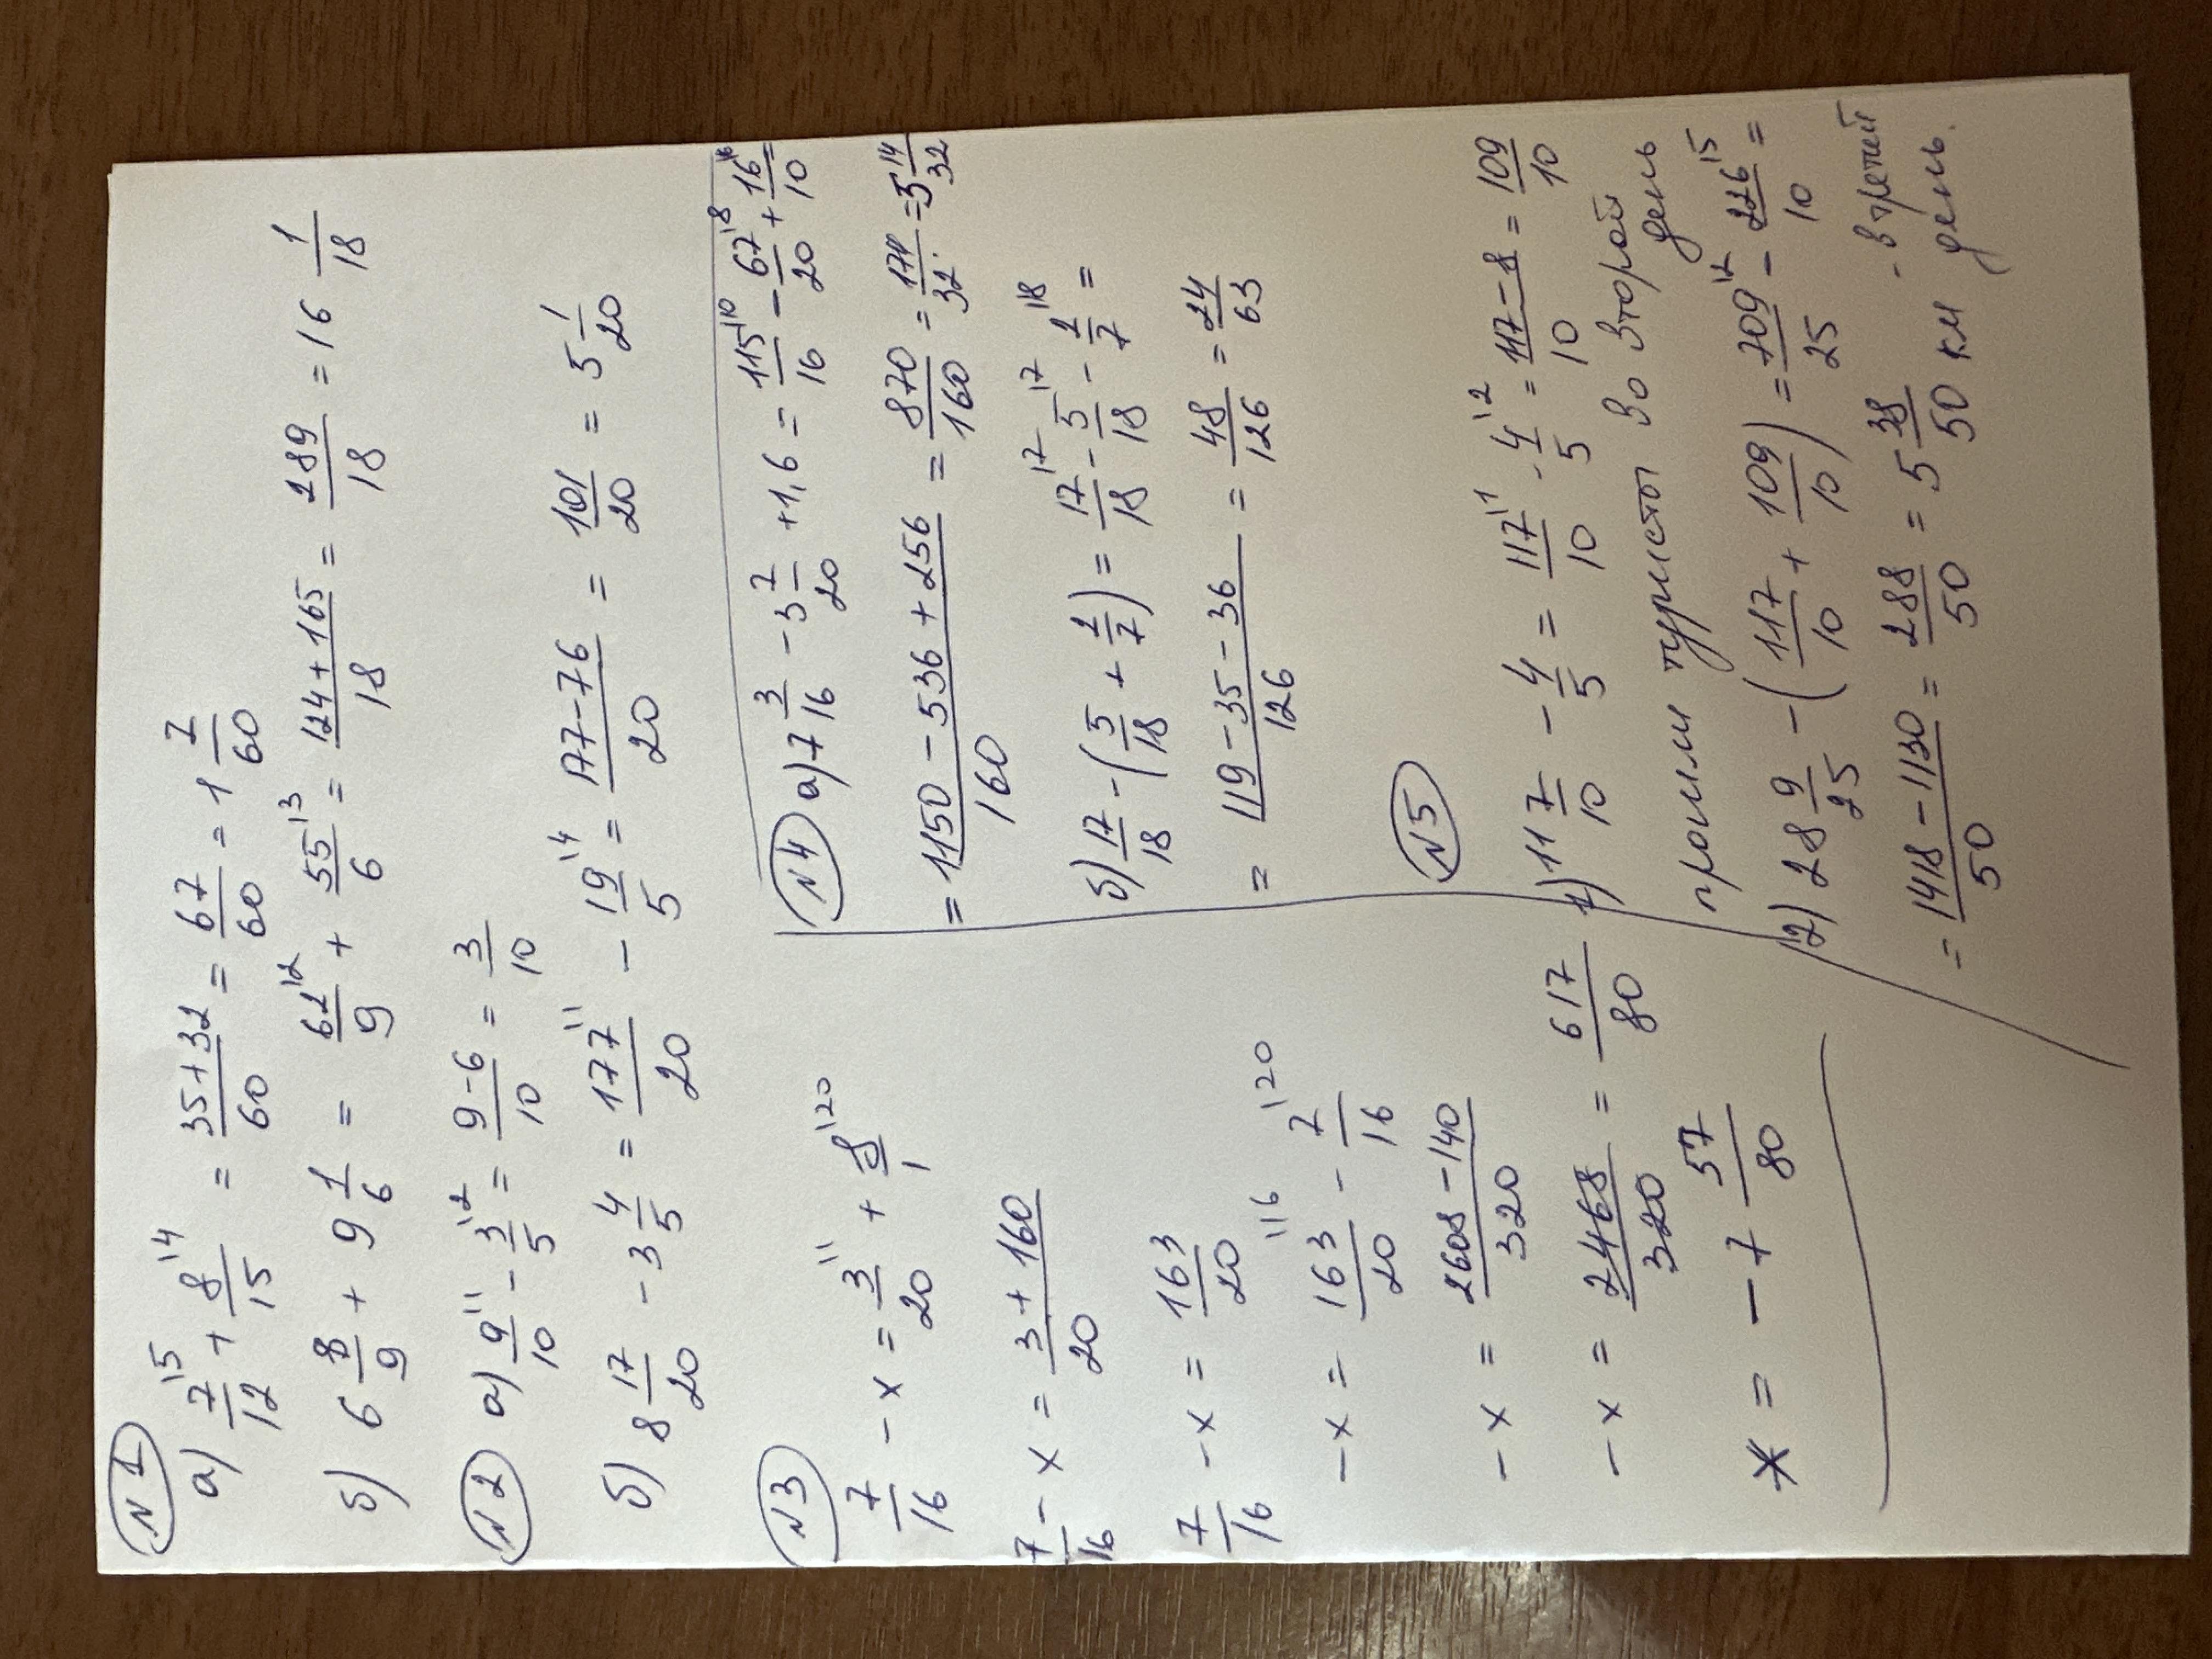 N1
а) 7/12\5 + 8/15\4 = (35+32)/60 = 67/60 = 1 7/60
б) 6 8/9 + 9 1/6 = 62/9\2 + 55/6\3 = (124+165)/18 = 289/18 = 16 1/18
N2 а) 9/10\1 - 3/5\2 = (9-6)/10 = 3/10
б) 8 17/20 - 3 4/5 = 177/20\1 - 19/5\4 = (177-76)/20 = 101/20 = 5 1/20
N3
7/16 - x = 3/20\1 + 8/1\20
7/16 - x = (3+160)/20
7/16 - x = 163/20
-x = 163/20\16 - 7/16\20
-x = (2608-140)/320
-x = 2468/320 = 617/80
x = -7 57/80
N4 а) 7 3/16 - 3 7/20 + 1,6 = 115/16\10 - 67/20\8 + 16/10\16 =
= (1150-536+256)/160 = 870/160 = 174/32 = 5 14/32
б) 17/18 - (5/18 + 2/7) = 17/18\7 - 5/18\7 - 2/7\18 =
= (119-35-36)/126 = 48/126 = 24/63
N5
1) 11 7/10 - 4/5 = 117/10\1 - 4/5\2 = (117-8)/10 = 109/10
прошли туристы во второй день
2) 28 9/25 - (117/10 + 109/10) = 709/25\2 - 226/10\5 =
= (1418-1130)/50 = 288/50 = 5 38/50 км - в третий день.